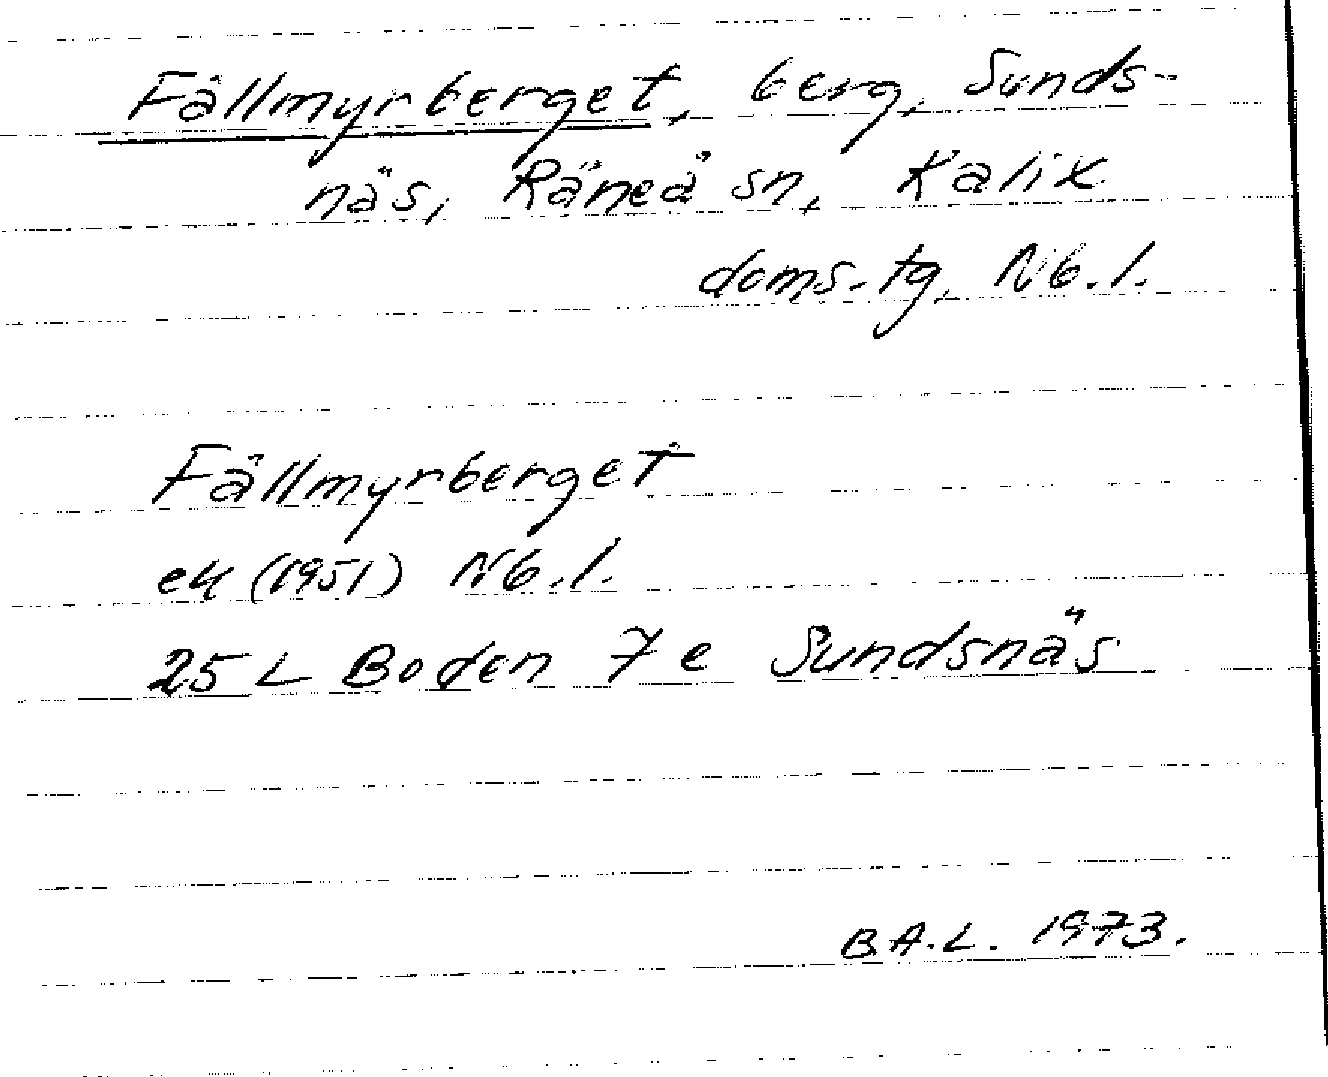 Fällmyrberget, berg, Sunds-
näs, Råneå sn, Kalix
doms. tg, Nb. l.
Fällmyrberget
ek (1951) Nb. l.
25 L Boden 7 e Sundsnäs
B.A.L. 1973.